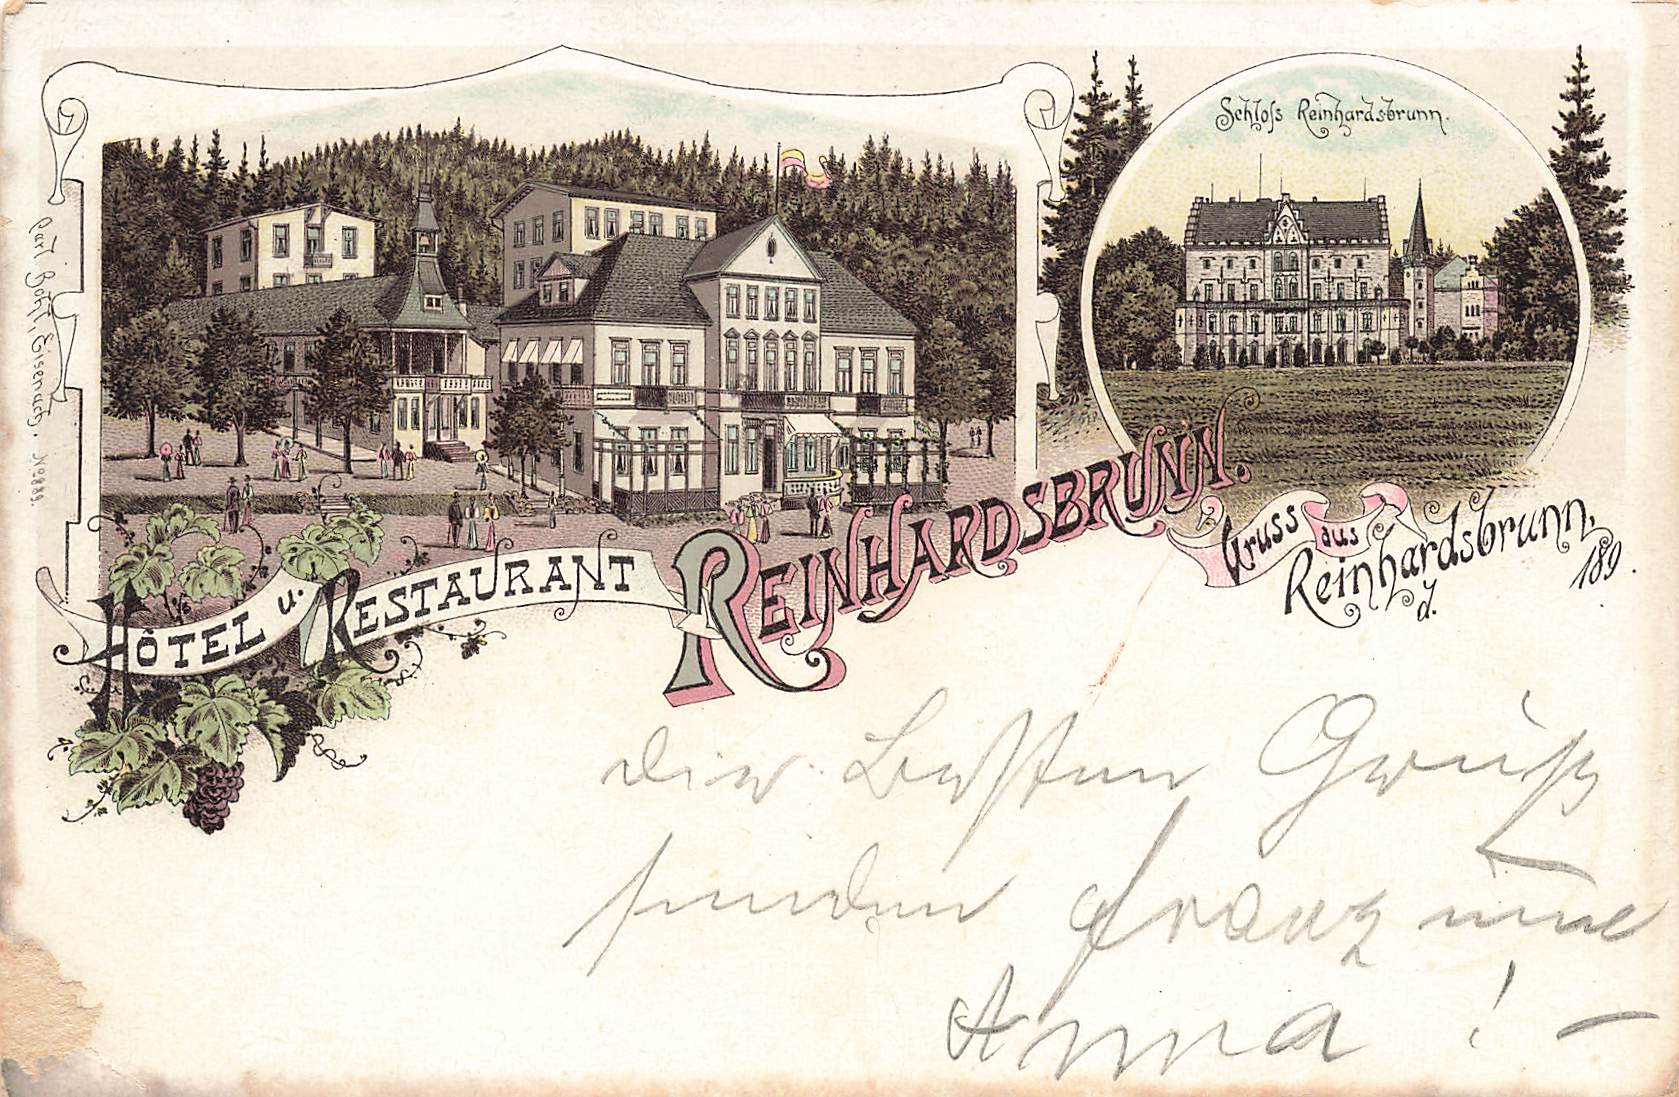 Schloss Reinhardsbrunn.
Carl Bohl, Eisenach. No 889.
HÔTEL u. RESTAURANT REINHARDSBRUNN.
Gruss aus
Reinhardsbrunn,
d. 189 .
Die besten Grüße
senden Franz und
Anna! –